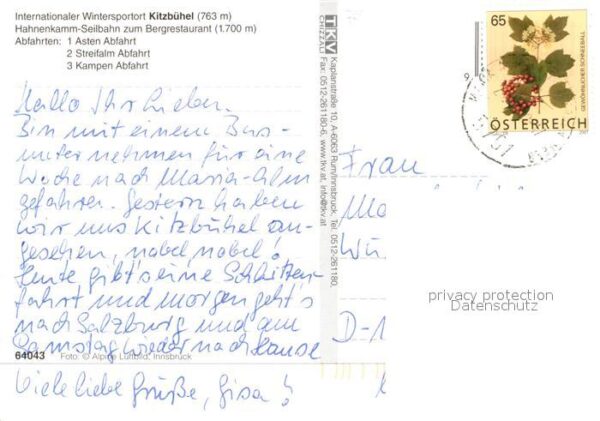 Internationaler Wintersportort Kitzbühel (763 m)
Hahnenkamm-Seilbahn zum Bergrestaurant (1.700 m)
Abfahrten: 1 Asten Abfahrt
2 Streifalm Abfahrt
3 Kampen Abfahrt
Hallo Ihr Lieben.
Bin mit einem Bus-
unternehmen für eine
Woche nach Maria-Alm
gefahren. Gestern haben
wir uns Kitzbühel an-
gesehen, nobel nobel!
Heute gibt's eine Schlitten-
fahrt und morgen geht's
nach Salzburg und am
Samstag wieder nach Hause
64043 Foto: © Alpine Luftbild, Innsbruck
Viele liebe Grüße, Gisa!
TKV
CHIZZALI
Kaplanstraße 10, A-6063 Rum/Innsbruck, Tel. 0512-261180,
Fax: 0512-261180-6, www.tkv.at, info@tkv.at
65
GEWÖHNLICHER SCHNEEBALL
ÖSTERREICH
Frau
D-1
privacy protection
Datenschutz